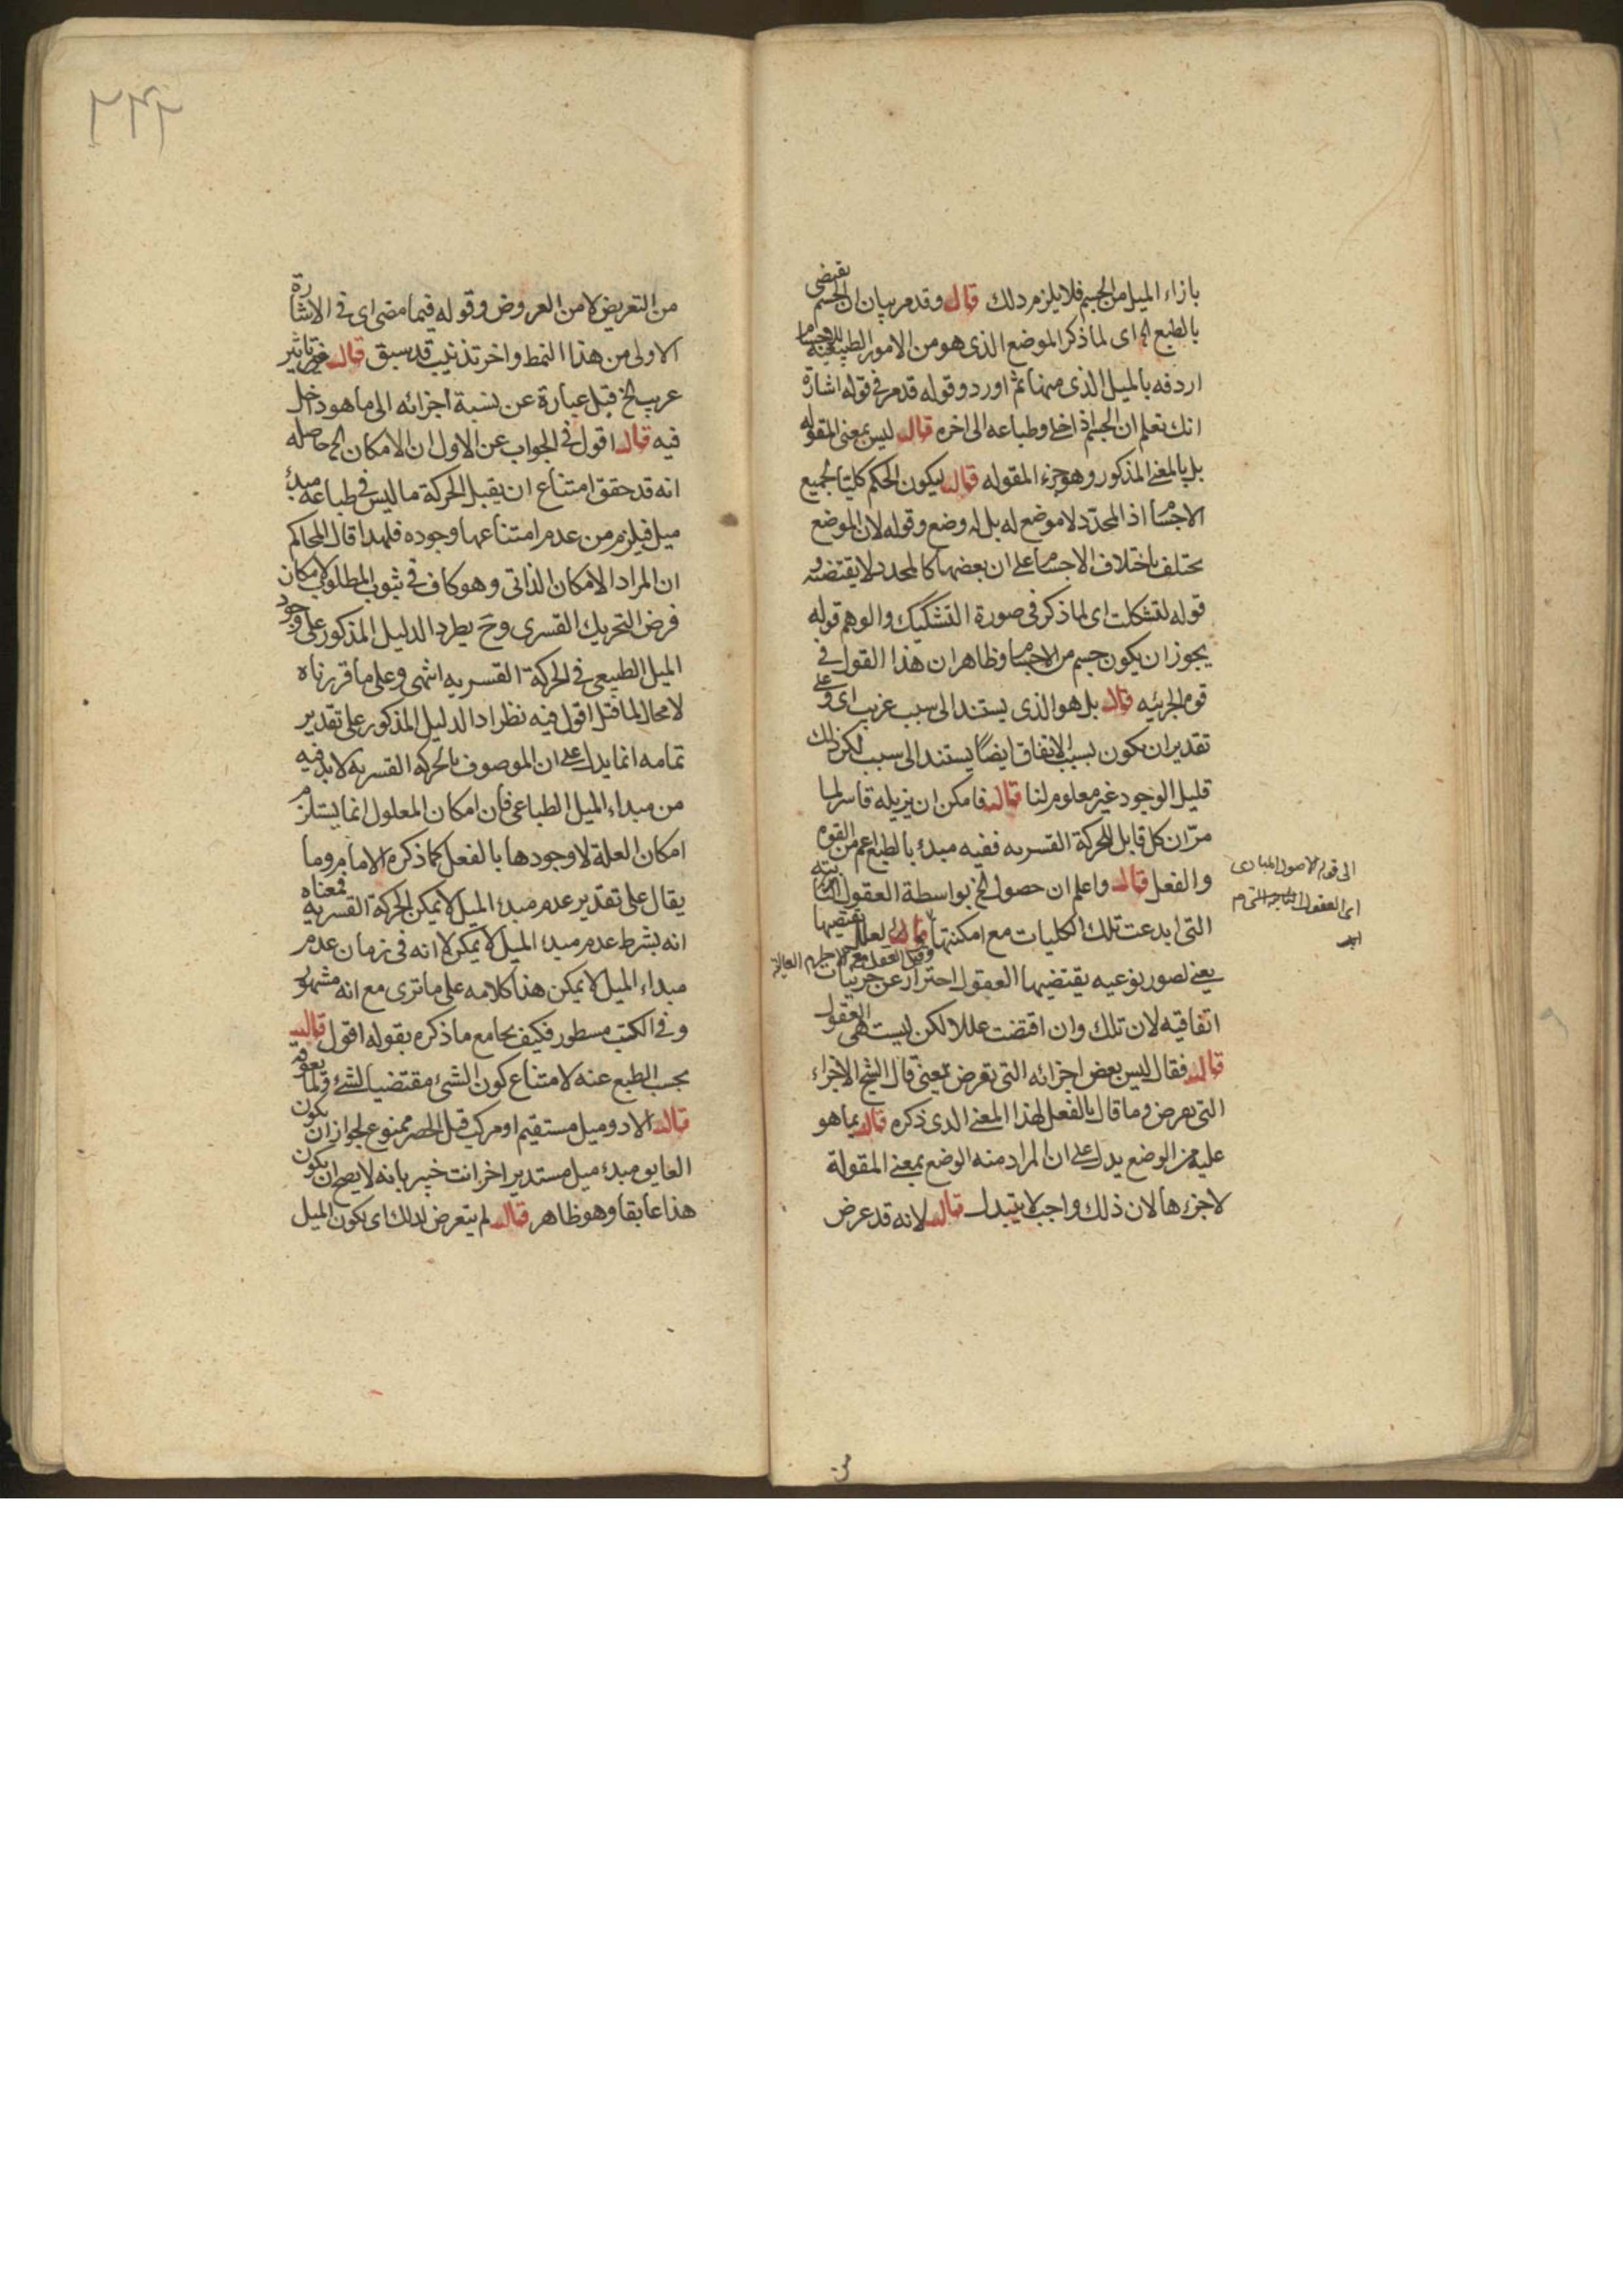 بازاء الميل من الجسم فلا يلزم ذلك قال وقد مر بيان ان الجسم يقتضى
بالطبع الخ اى لما ذكر الموضع الذى هو من الامور الطبيعية للاجسام
اردفه بالميل الذى منها ثم اورد وقوله قد مر فى قوله اشارة
انك تعلم ان الجسم اذا خلى وطباعه الى اخره قال ليس بمعنى المقوله
بل بالمعنى المذكور وهو جزء المقوله قال ليكون الحكم كليا لجميع
الاجسام اذ المحدد لا موضع له بل له وضع وقوله لان الموضع
يختلف باختلاف الاجسام على ان بعضها كالمحدد لا يقتضيه و
قوله لتشكلت اى لما ذكر فى صورة التشكيك والوهم قوله
يجوز ان يكون جسم من الاجسام وظاهر ان هذا القول فى
قوه الجزئيه قال بل هو الذى يستند الى سبب غريب اى وعلى
تقدير ان يكون بسبب الاتفاق ايضا يستند الى سبب لكن ذلك
قليل الوجود غير معلوم لنا قال فامكن ان يزيله قاسر لما
مر ان كل قابل للحركة القسريه ففيه مبدء بالطبع اعم من القوه
والفعل قال واعلم ان حصول الخ بواسطة العقول
التى ابدعت تلك الكليات مع امكنتها قال لعلل يقتضيها
يعنى لصور نوعيه يقتضيها العقول احتراز عن جزئيات
اتفاقيه لان تلك وان اقتضت عللا لكن ليست هى العقول
قال فقال ليس بعض اجزائه التى تفرض يعنى قال الشيخ الاجزاء
التى تفرض وما قال بالفعل لهذا المعنى الذى ذكره قال بما هو
عليه من الوضع يدل على ان المراد منه الوضع بمعنى المقولة
لا جزءها لان ذلك واجب لا يتبدل قال لانه قد عرض
من
من التعريض لا من العروض وقوله فيما مضى اى فى الاشارة
الاولى من هذا النمط واخر تذنيب قد سبق قال غير تاثير
غريب الخ قيل عبارة عن نسبة اجزائه الى ما هو داخل
فيه قال اقول فى الجواب عن الاول ان الامكان الخ حاصله
انه قد حقق امتناع ان يقبل الحركة ما ليس فى طباعه مبدء
ميل فيلزم من عدم امتناعها وجوده فلهذا قال المحاكم
ان المراد الامكان الذاتى وهو كاف فى ثبوت المطلوب لامكان
فرض التحريك القسرى وح يطرد الدليل المذكور على وجود
الميل الطبيعى فى الحركة القسريه انتهى وعلى ما قررناه
لا مجال لما قيل اقول فيه نظر اذ الدليل المذكور على تقدير
تمامه انما يدل على ان الموصوف بالحركة القسريه لا بد فيه
من مبداء الميل الطباعى فان امكان المعلول انما يستلزم
امكان العلة لا وجودها بالفعل كما ذكره الامام وما
يقال على تقدير عدم مبدء الميل لا يمكن الحركة القسريه فمعناه
انه بشرط عدم مبدء الميل لا يمكن لا انه فى زمان عدم
مبداء الميل لا يمكن هذا كلامه على ما ترى مع انه مشهور
وفى الكتب مسطور فكيف يجامع ما ذكره بقوله اقول قال
بحسب الطبع عنه لامتناع كون الشئ مقتضيا لشئ ولما يعوقه
قال الا ذو ميل مستقيم او مركب قيل الحصر ممنوع لجواز ان يكون
العايق مبدء ميل مستدير اخر انت خبير بانه لا يصح ان يكون
هذا عايقا وهو ظاهر قال لم يتعرض لذلك اى يكون الميل